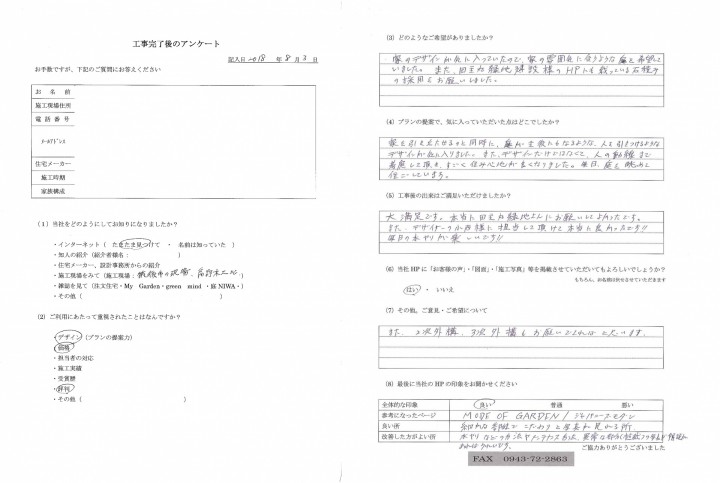 工事完了後のアンケート
記入日 2018 年 8 月 3 日
お手数ですが、下記のご質問にお答えください
お 名 前
施工現場住所
電 話 番 号
ﾒｰﾙｱﾄﾞﾚｽ
住宅メーカー
施工時期
家族構成
(1) 当社をどのようにしてお知りになりましたか?
・インターネット( たまたま見つけて ・ 名前は知っていた )
・知人の紹介(紹介者様名: )
・住宅メーカー、設計事務所からの紹介
・施工現場をみて(施工現場: )
・雑誌を見て(注文住宅・My Garden・green mind ・庭NIWA・)
・その他( )
(2) ご利用にあたって重視されたことはなんですか?
・デザイン(プランの提案力)
・価格
・担当者の対応
・施工実績
・受賞歴
・評判
・その他( )
(3) どのようなご希望がありましたか?
家のデザインが気に入っていたので、家の雰囲気に合うような庭を希望して
いました。また、田主丸緑地建設様のHPにも載っている石種
の採用もお願いしました。
(4) プランの提案で、気に入っていただいた点はどこでしたか?
家を引き立たせると同時に、庭が主役にもなるような、人を引きつけるような
デザインが気に入りました。また、デザインだけではなく、人の動線まで
考慮して頂き、すごく住み心地が良くなりました。毎日、庭を眺めて
過ごしています。
(5) 工事後の出来はご満足いただけましたか?
大満足です。本当に田主丸緑地さんにお願いしてよかったです。
また、デザイナーの 様に担当して頂けて本当に良かったです!!
毎日の水やりが楽しいです!!
(6) 当社HPに「お客様の声」・「図面」・「施工写真」等を掲載させていただいてもよろしいでしょうか?
もちろん、お名前は伏せさせていただきます
・はい ・ いいえ
(7) その他、ご意見・ご希望について
また、2次外構、3次外構もお願いできればと思います。
(8) 最後に当社のHPの印象をお聞かせください
全体的な印象 良い 普通 悪い
参考になったページ MODE OF GARDEN /
良い所 こだわりと 見れる所。
改善した方がよい所 水やり
ご協力ありがとうございました
FAX 0943-72-2863